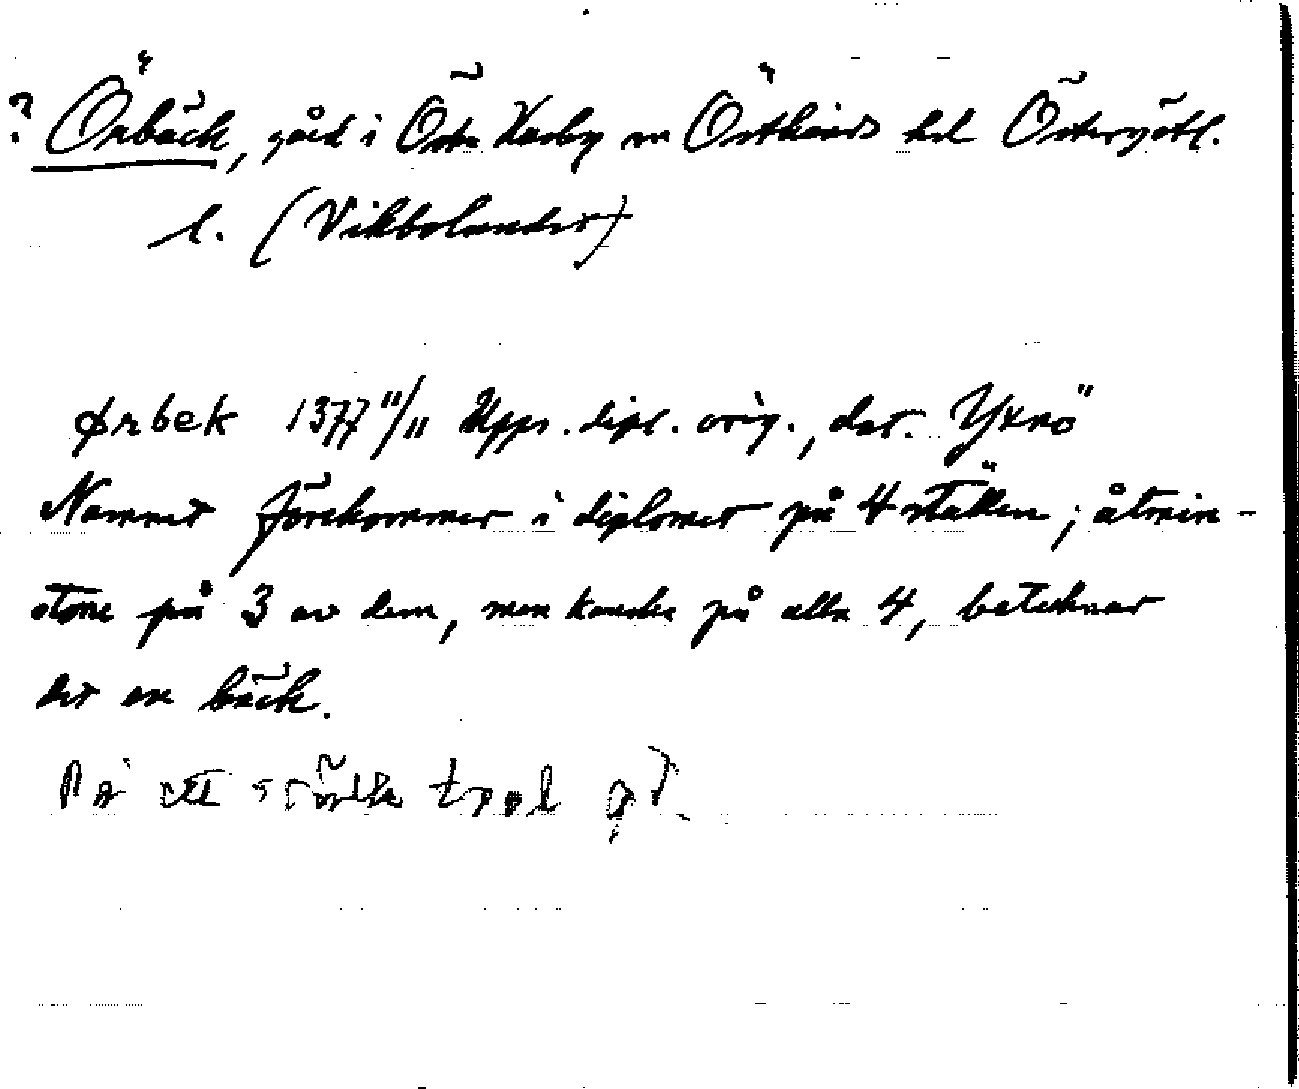 ? Örbäck, gård i Östra Husby sn Östkinds hd Östergötl.
l. (Vikbolandet)
Ørbek 1377 11/11 Upps. dipl. orig., dat. Yxnö
Namnet förekommer i diplomet på 4 ställen; åtmin-
stone på 3 av dem, men kanske på alla 4, betecknar
det en bäck.
På ett ställe